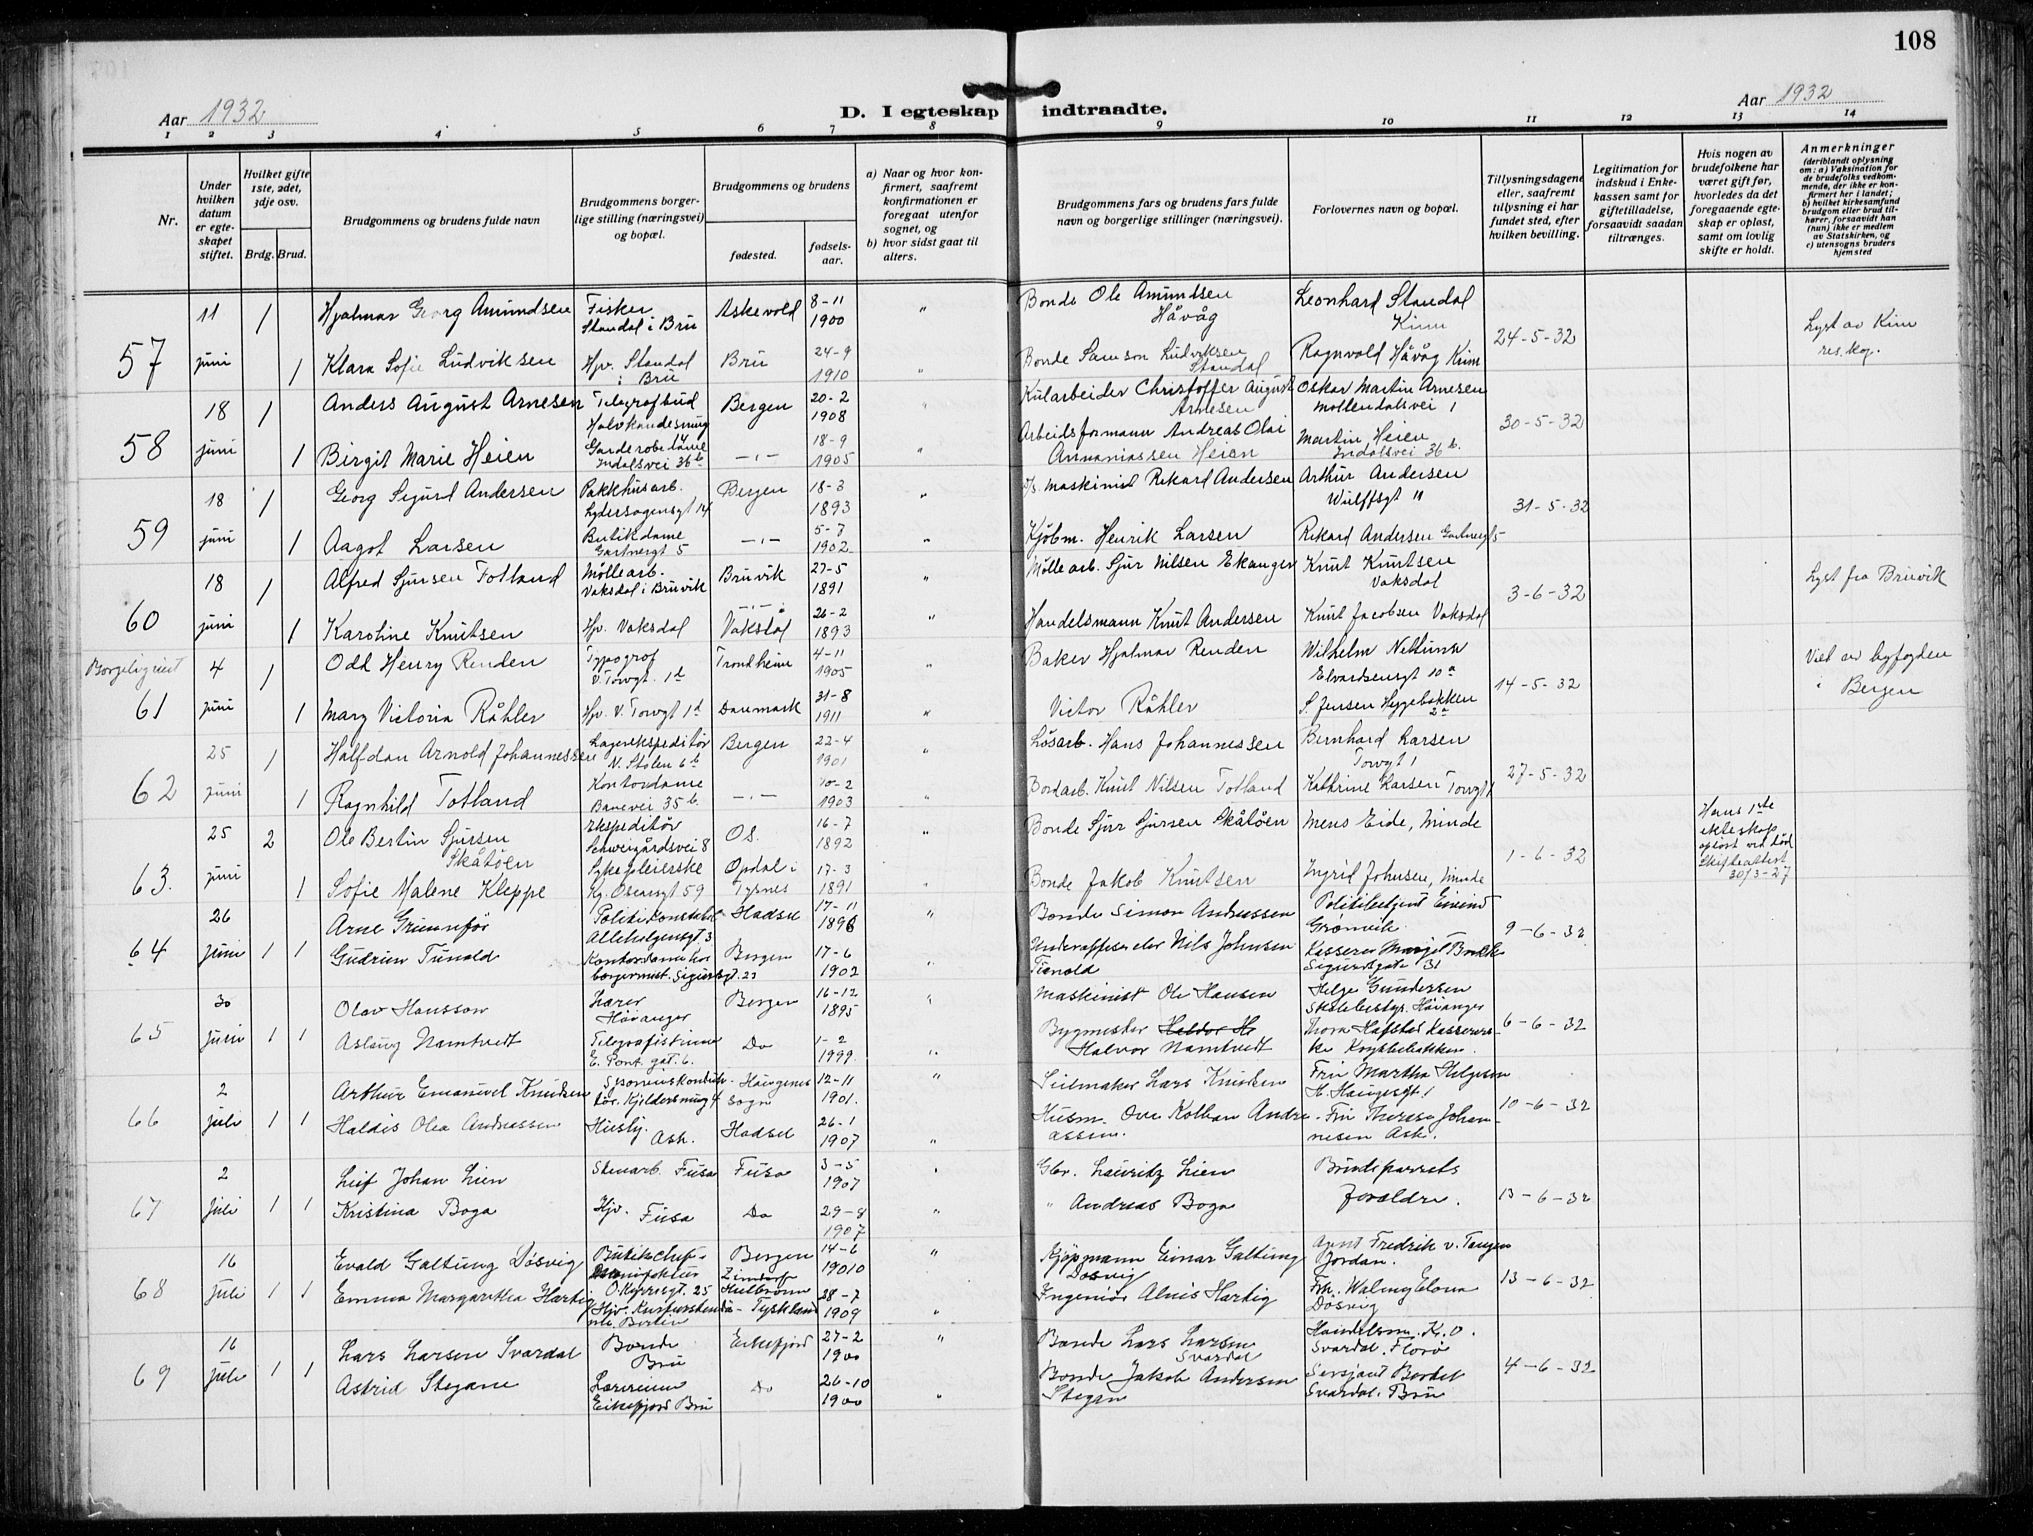 108
Aar 1932
Aar 1932
D. I egteskap indtraadte.
1 2 3 4 5 6 7 8 9 10 11 12 13 14
Nr.
Under hvilken datum er egteskapet stiftet.
Hvilket gifte 1ste, 2det, 3dje osv.
Brdg. Brud.
Brudgommens og brudens fulde navn
Brudgommens borgerlige stilling (næringsvei) og bopæl.
Brudgommens og brudens
fødested.
fødselsaar.
a) Naar og hvor konfirmert, saafremt konfirmationen er foregaat utenfor sognet, og
b) hvor sidst gaat til alters.
Brudgommens fars og brudens fars fulde navn og borgerlige stillinger (næringsvei).
Forlovernes navn og bopæl.
Tillysningsdagene eller, saafremt tillysning ei har fundet sted, efter hvilken bevilling.
Legitimation for indskud i Enkekassen samt for giftetilladelse, forsaavidt saadan tiltrænges.
Hvis nogen av brudefolkene har været gift før, hvorledes da det foregaaende egteskap er opløst, samt om lovlig skifte er holdt.
Anmerkninger
(deriblandt oplysning om: a) Vaksination for de brudefolks vedkommende, der ikke er konfirmert her i landet; b) hvilket kirkesamfund brudgom eller brud tilhører, forsaavidt han (hun) ikke er medlem av Statskirken, og c) utensogns bruders hjemsted
57 11 juni 1 Hjalmar Georg Amundsen Fisker Standal i Bru Askevold 8-11 1900 " Bonde Ole Amundsen Håvåg Leonhard Standal Kinn 24-5-32 Lyst av Kinn res.kap.
1 Klara Sofie Ludviksen Hjv. Standal i Bru Bru 24-9 1910 " Bonde Samson Ludviksen Standal Ragnvald Håvåg Kinn
58 18 juni 1 Anders August Arnesen Telegrafbud Bergen 20-2 1908 " Kularbeider Christoffer August Arnesen Oskar Martin Arnesen Møllendalsvei 1 30-5-32
1 Birgit Marie Heien Garderobedame Indalsvei 36 b -"- 18-9 1905 " Arbeidsformann Andreas Olai Annaniassen Heien Martin Heien Indalsvei 36 b.
59 18 juni 1 Georg Sigurd Andersen Pakkhusarb. Lydersagensgt 14 Bergen 18-3 1893 " Maskinist Rikard Andersen Arthur Andersen Wulffsgt 11 31-5-32
1 Aagot Larsen Butikdame Gartnergt 5 -"- 5-7 1902 " Kjøbm. Henrik Larsen Rikard Andersen Gartnergt 5
60 18 juni 1 Alfred Sjursen Totland Møllearb. Vaksdal i Bruvik Bruvik 27-5 1891 " Møllearb. Sjur Nilsen Ekanger Knut Knutsen Vaksdal 3-6-32 Lyst fra Bruvik
1 Karoline Knutsen Hjv. Vaksdal Vaksdal 26-2 1893 " Handelsmann Knut Andersen Knut Jacobsen Vaksdal
Borgelig viet 61 4 juni 1 Odd Henry Renden Typograf V. Torvgt. 1 d Trondheim 4-11 1905 " Baker Hjalmar Renden Wilhelm 10 a 14-5-32 Viet av byfogden i Bergen
1 Mary Victoria Råhler Hjv. V. Torvgt 1 d Danmark 31-8 1911 " Victor Råhler S. Jensen Hyggebakken 2 a
62 25 juni 1 Halfdan Arnold Johannessen Lagerekspeditør N. Stølen 6 b Bergen 22-4 1901 " Løsarb. Hans Johannessen Bernhard Larsen Torvgt 1 27-5-32
1 Ragnhild Totland Kontordame Banevei 35 b. -"- 10-2 1903 " Bordarb. Knut Nilsen Totland Kathrine Larsen Torvgt 1
63. 25 juni 2 Ole Bertin Sjursen Skåtøen Ekspeditør Schweigårdsvei 8 Os. 16-7 1892 " Bonde Sjur Sjursen Skåtøen Mons Eide, Minde 1-6-32 Hans 1ste ekteskap opløst ved død Skifteattest 30/3-27
1 Sofie Malene Kleppe Sykepleierske Kg. Oscarsgt 59 Opdal i Tysnes 17-3 1891 " Bonde Jakob Knutsen Ingrid Johnsen, Minde
64 26 juni 1 1 Arne Grunnfør Politikonstabel Allehelgensgt 3 Hadsel 17-11 1896 " Bonde Simon Andreassen Politibetjent Eivind Grønvik 9-6-32
Gudrun Tunold Kontordame hos borgermest. Sigurdsgt. 22 Bergen 17-6 1902 " Nils Johnsen Tunold Kasserer Margit Sigurdsgate 31
65 30 juni 1 1 Olav Hansson Lærer Høianger Bergen 16-12 1895 " Maskinist Ole Hansen Helge Gundersen Skolebestyr. Høianger 6-6-32
Aslaug Namtvedt Telegrafistinne E. Pont. gat. 6. Do 1-2 1999. " Bygmester Halvor Namtvedt Thora Hafstad Kassererske
66 2 juli 1 1 Arthur Emanuel Knudsen Haugenes Sogn 12-11 1901. " Seilmaker Lars Knudsen Fru Martha Helgesen H. Haugesgt 1 10-6-32
Haldis Olea Andreassen Husby. Ask. Hadsel 26-1 1907 " Husm. Ove Kolban Andreassen. Fru Therese Johannesen Ask.
67 2 juli 1 1 Leif Johan Lien Stenarb. Fusa Fusa 3-5 1907 " Gbr. Lauritz Lien Brudeparrets foreldre. 13-6-32
Kristina Boga Hjv. Fusa Do 29-8 1907 " " Andreas Boga
68 16 juli 1 1 Evald Galtung Døsvig Butikchef Manifaktur O. Kyrresgt. 25 Bergen 14-6 19010 " Kjøpmann Einar Galtung Døsvig Agent Fredrik v. Tangen Jordan. 13-6-32
Emma Margaretha Hartig Hjv. Berlin Tyskland 28-7 1909 " Ingeniør Alois Hartig Frk. Døsvig
69 16 juli 1 1 Lars Larsen Svardal Bonde Bru Eikefjord 27-2 1900 " Bonde Lars Larsen Svardal Handelsm. K. O. Svardal. Florø 4-6-32
Astrid Stegane Lærerinne Eikefjord Bru Do 26-10 1900 " Bonde Jakob Andersen Stegen Sersjant Svardal. Bru